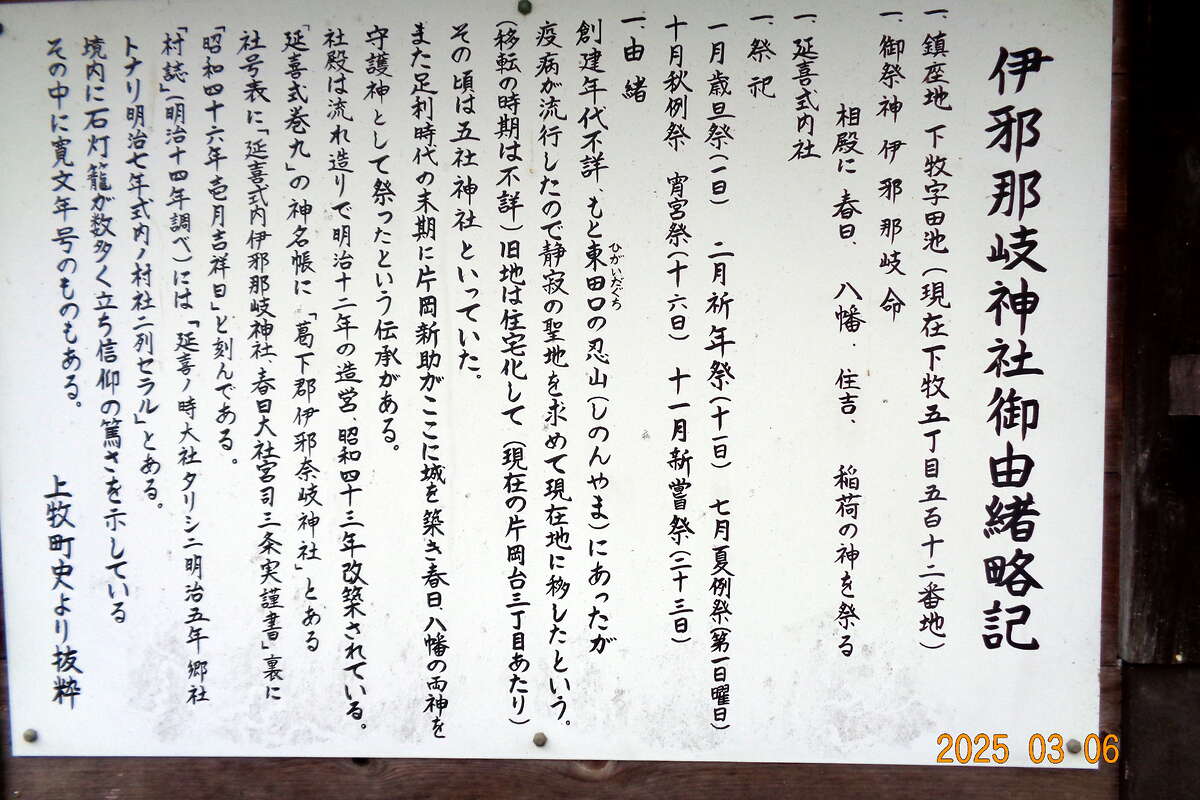 伊邪那岐神社御由緒略記
一、鎮座地 下牧字田池(現在下牧五丁目五百十二番地)
一、御祭神 伊邪那岐命
相殿に 春日、八幡、住吉、稲荷の神を祭る
一、延喜式内社
一、祭祀
一月歳旦祭(一日) 二月祈年祭(十一日) 七月夏例祭(第一日曜日)
十月秋例祭 宵宮祭(十六日) 十一月新嘗祭(二十三日)
一、由緒
創建年代不詳、もと東田口の忍山(しのんやま)にあったが
ひがいだぐち
疫病が流行したので静寂の聖地を求めて現在地に移したという。
(移転の時期は不詳)旧地は住宅化して(現在の片岡台三丁目あたり)
その頃は五社神社といっていた。
また足利時代の末期に片岡新助がここに城を築き春日、八幡の両神を
守護神として祭ったという伝承がある。
社殿は流れ造りで明治十二年の造営、昭和四十三年改築されている。
「延喜式巻九」の神名帳に「葛下郡伊邪奈岐神社」とある
社号表に「延喜式内伊邪那岐神社、春日大社宮司三条実謹書」裏に
「昭和四十六年壱月吉祥日」と刻んである。
「村誌」(明治十四年調べ)には「延喜ノ時大社タリシニ明治五年 郷社
トナリ明治七年式内ノ村社ニ列セラル」とある。
境内に石灯籠が数多く立ち信仰の篤さを示している
その中に寛文年号のものもある。
上牧町史より抜粋
2025 03 06